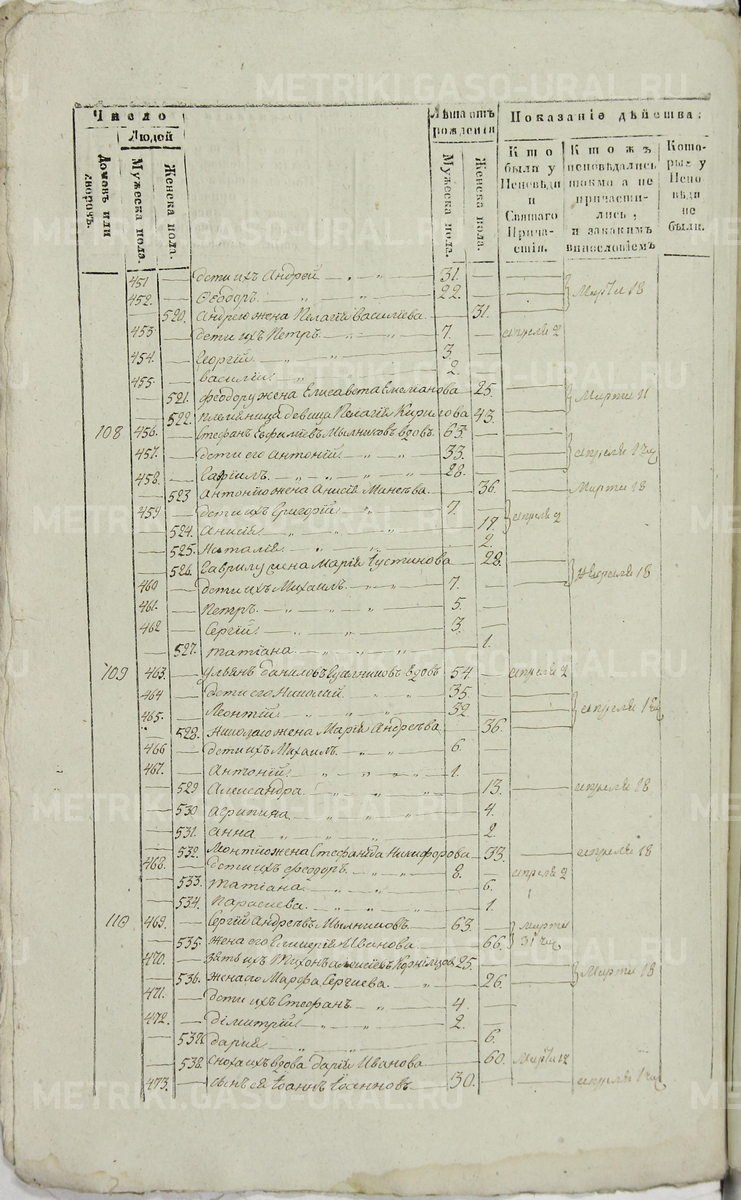 METRIKI.GASO-URAL.RU
Число
Людей
Домовъ или дворовъ.
Мужеска пола.
Женска пола.
Лѣта отъ рожденія
Мужеска пола.
Женска пола.
Показаніе дѣйства:
Кто были у Исповѣди и Святаго Причастія.
Кто жъ исповѣдались токмо а не причастились, и за какимъ винословіемъ
Которые у Исповѣди не были.
451 дѣти ихъ Андрей 31.
452. Ѳеодоръ 22. Марта 18
520. Андрею жена Пелагія Васильева 31.
453 дѣти ихъ Петръ 7. апреля 2
454. Георгій 3
455. Василій 2.
521. Ѳеодору жена Елисавета Емелианова 25. Марта 11
522. племянница девица Пелагія Кирилова 43.
108 456. Стефанъ Евфиміевъ Мыльниковъ вдовъ 63.
457. дѣти его Антоній 33. апреля
458. Гавріилъ 28.
523 Антонію жена Анисія 36. Марта 18
459 дѣти ихъ Григорій 7. апреля 2
524. Анисія
525. Наталія 2
526. Гаврилу жена Марія Іустинова 28.
460 дѣти ихъ Михаилъ 7. 18
461. Петръ 5.
462 Сергій 3.
527. Татіана 1.
109 463. Ульянъ Даниловъ вдовъ 54 апреля 2
464 дѣти его Николай 35.
465. Леонтій 32 апреля
528. Николаю жена Марія Андреева 36.
466 дѣти ихъ Михаилъ 6.
467. Антоній 1.
529 Александра 13. апреля 18
530 Агрипина 4.
531. Анна 2.
532. Леонтію жена Стефанида Никифорова 33. апреля 18
468. дѣти ихъ Ѳеодоръ 8. апреля 2
533. Татіана 6.
534. Параскева 1
110 469. Сергій Андреевъ Мыльниковъ 63. Марта
535. жена его Иванова 66. 31
470. зять ихъ Тихонъ Алексіевъ 25.
536. жена его Марфа Сергіева 26. Марта 18
471. дѣти ихъ Стефанъ 4.
472. Димитрій 2.
537. Дарія 6.
538. сноха ихъ вдова Дарія Иванова 60. Марта
473. сынъ ея Іоаннъ Іоанновъ 30. апреля